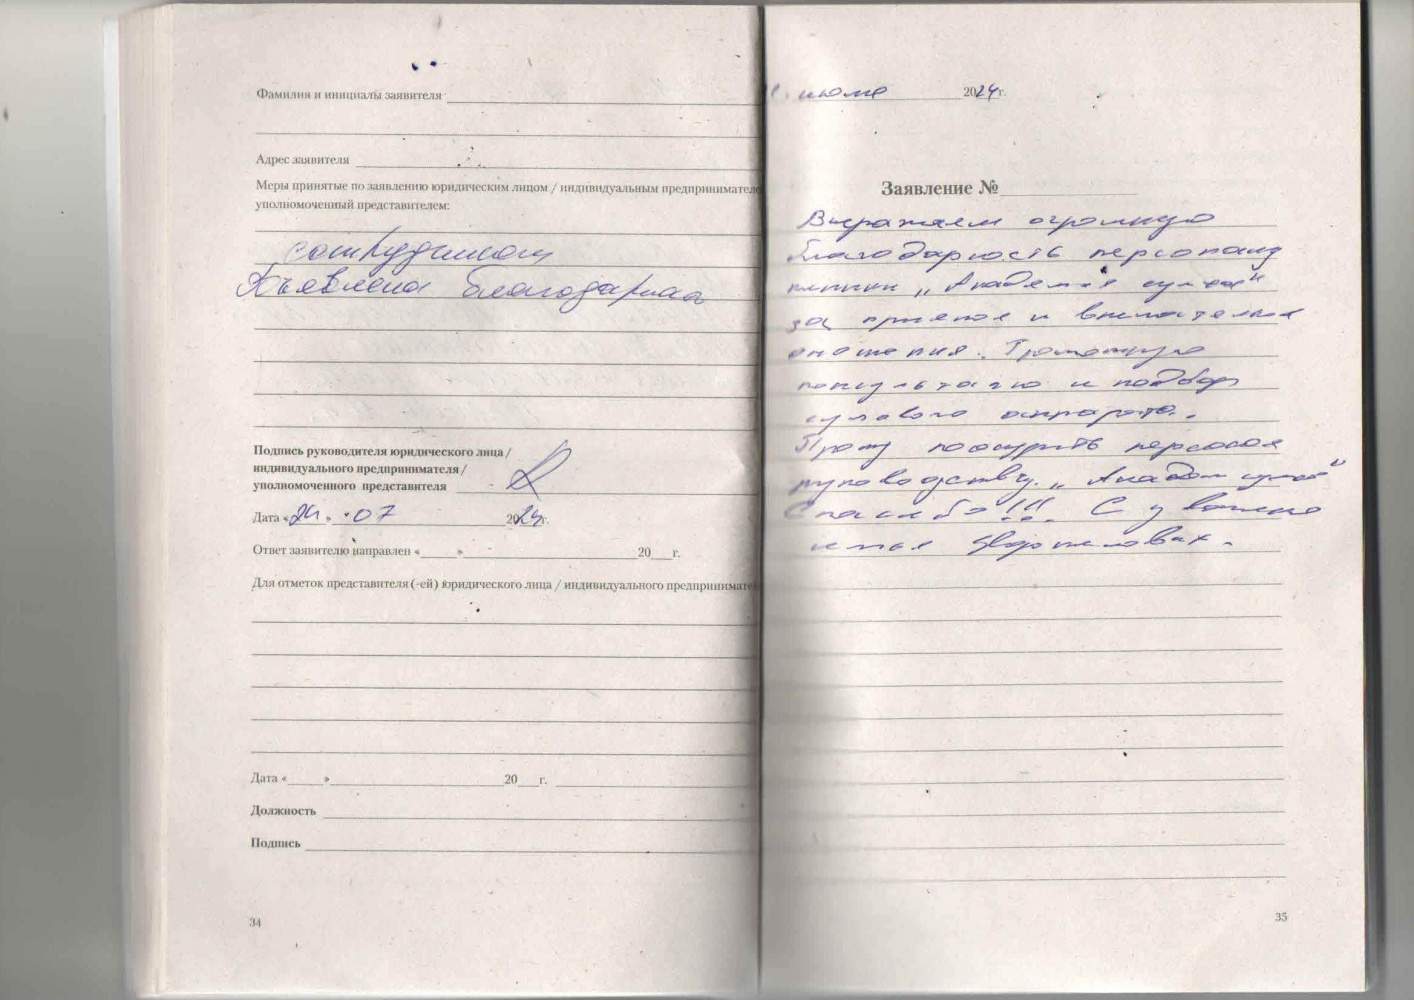 Фамилия и инициалы заявителя
Адрес заявителя
Меры принятые по заявлению юридическим лицом / индивидуальным предпринимателе
уполномоченный представителем:
сотрудникам
Объявлена благодарная
Подпись руководителя юридического лица /
индивидуального предпринимателя /
уполномоченного представителя
Дата «24» 07 2024г.
Ответ заявителю направлен «____»____ 20__г.
Для отметок представителя (-ей) юридического лица / индивидуального предпринимате
Дата «____»____ 20__г.
Должность
Подпись
34
июля 2024г.
Заявление №
Выражаем огромную
благодарность персоналу
клиники „Академия слуха"
за прием и внимательное
отношения. Грамотную
консультацию и подбор
слухового аппарата.
Прошу поощрить персонал
руководству „Академ слуха"
Спасибо!!! С уважение
семья
35